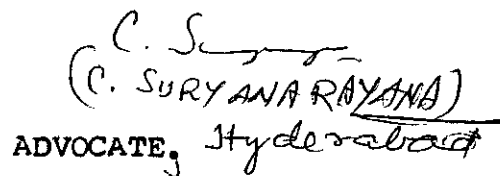 (C. SURYANARAYANA)
ADVOCATE, Hyderabad